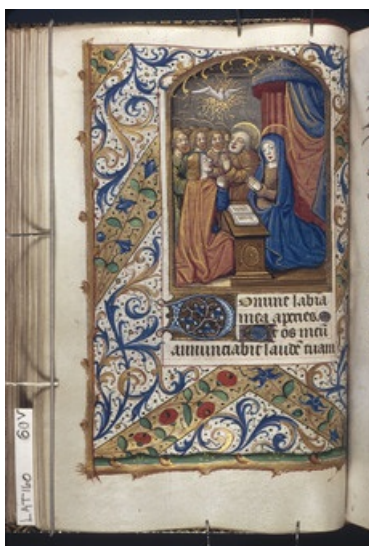 Domine labia
mea aperies.
Et os meū
annunciabit laudē tuam
LAT160 60V